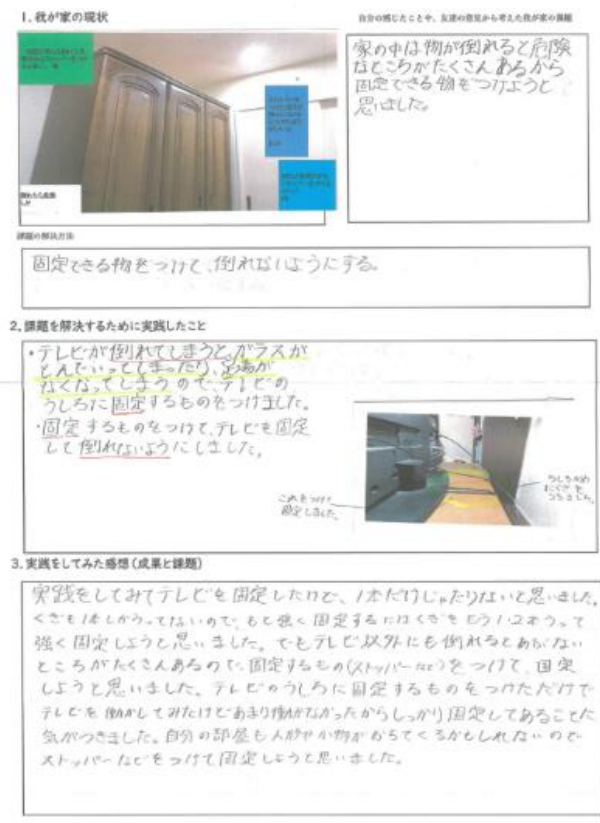 1、我が家の現状
自分の感じたことや、友達の意見から考えた我が家の課題
家の中は物が倒れると危険
なところがたくさんあるから
固定できる物をつけようと
思いました。
課題の解決方法
固定できる物をつけて、倒れないようにする。
2、課題を解決するために実践したこと
・テレビが倒れてしまうと、ガラスが
とんでいってしまったり、足場が
なくなってしまうので、テレビの
うしろに固定するものをつけました。
・固定するものをつけて、テレビを固定
して倒れないようにしました。
これをつけて
固定しました。
うしろがわ
にくぎを
うちました。
3、実践をしてみた感想(成果と課題)
実践をしてみてテレビを固定したけど、1本だけじゃたりないと思いました。
くぎも1本しかうってないので、もっと強く固定するにはくぎをもう1、2本うって
強く固定しようと思いました。でもテレビ以外にも倒れるとあぶない
ところがたくさんあるので、固定するもの(ストッパーなど)をつけて、固定
しようと思いました。テレビのうしろに固定するものをつけただけで
テレビを動かしてみたけどあまり動かなかったからしっかり固定してあることに
気がつきました。自分の部屋も人形や小物がおちてくるかもしれないので
ストッパーなどをつけて固定しようと思いました。